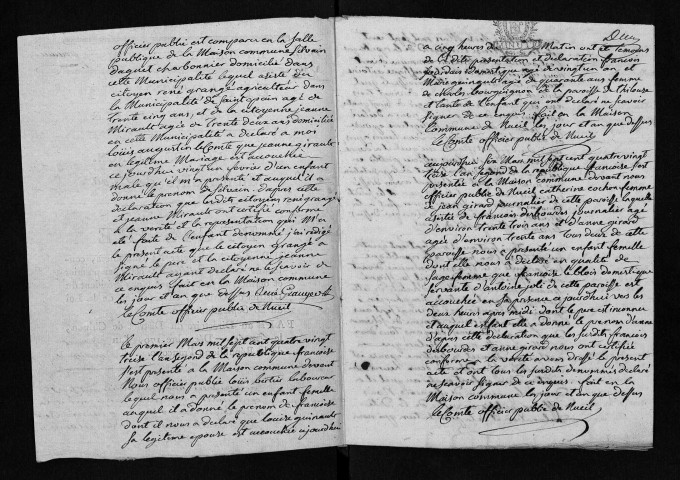 officier public est comparu en la Salle
publique de la Maison commune Silvain
daguet charbonnier domicilié dans
cette Municipalité lequel assisté du
citoyen rené grangé agriculteur dans
la Municipalité de Saint agé de
trente cinq ans, et de la citoyenne jeanne
Mirault agée de trente deux ans domiciliée
en cette Municipalité a déclaré a moi
louis augustin leComte que jeanne girault
en legitime Mariage est accouchée
ce jourd'huy vingt un fevrier d'un enfant
male qu'il m'a presenté et auquel il a
donné le prenom de Silvain. d'après cette
déclaration que lesdits citoyens rené grangé
et jeanne Mirault ont certifié conforme
a la verité et la representation qui m'a
eté faite de l'enfant denommé j'ai redigé
le present acte que le citoyen grangé a
Signé le pere et la citoyenne jeanne
Mirault ayant declaré ne le Savoir de
ce enquis. fait en la Maison commune
les jour et an que dessus
leComte officier public de Nueil
le premier Mars mil sept cent quatre vingt
treize l'an second de la republique francoise
s'est presenté a la Maison commune devant
Nous officier public louis laboureur
lequel nous a presenté un enfant femelle
auquel il a donné le prenom de francoise
dont il nous a declaré que louise quinault
Sa legitime epouse est accouchée aujourd'hui
a cinq heures du Matin ont eté temoins
de cesdite presentation et declaration francois
agé de vingt un ans et
Marie agée de quarante ans femme
de charles bourguignon de la paroisse de
et tante de l'enfant qui ont declaré ne scavoir
Signer de ce enquis. fait en la Maison
Commune de Nueil les jour et an que dessus
leComte officier public de Nueil
aujourd'hui Six Mars mil sept cent quatre vingt
treize l'an second de la republique francoise s'est
presentée a la Maison commune devant nous
officier public de Nueil catherine cochon femme
a jean girard journalier de cette paroisse laquelle
assistée de francois desbourdes journalier agé
d'environ trente trois ans et anne girard
agée d'environ trente ans tous deux de cette
paroisse nous a presenté un enfant femelle
dont elle nous a declaré en qualité de
Sage femme que francoise leblois domestique
servante d'antoine joli de cette paroisse est
accouchée en sa presence ce jourd'hui vers les
deux heures après midi dont le pere est inconnu
et auquel enfant elle a donné le prenom d'anne
d'après cette declaration que lesdits francois
desbourdes et anne girard nous ont certifiée
conforme a la verité avons dressé le present
acte et ont tous les susdits denommés declaré
ne scavoir Signer de ce enquis. fait en la
Maison commune les jour et an que dessus
leComte officier public de Nueil